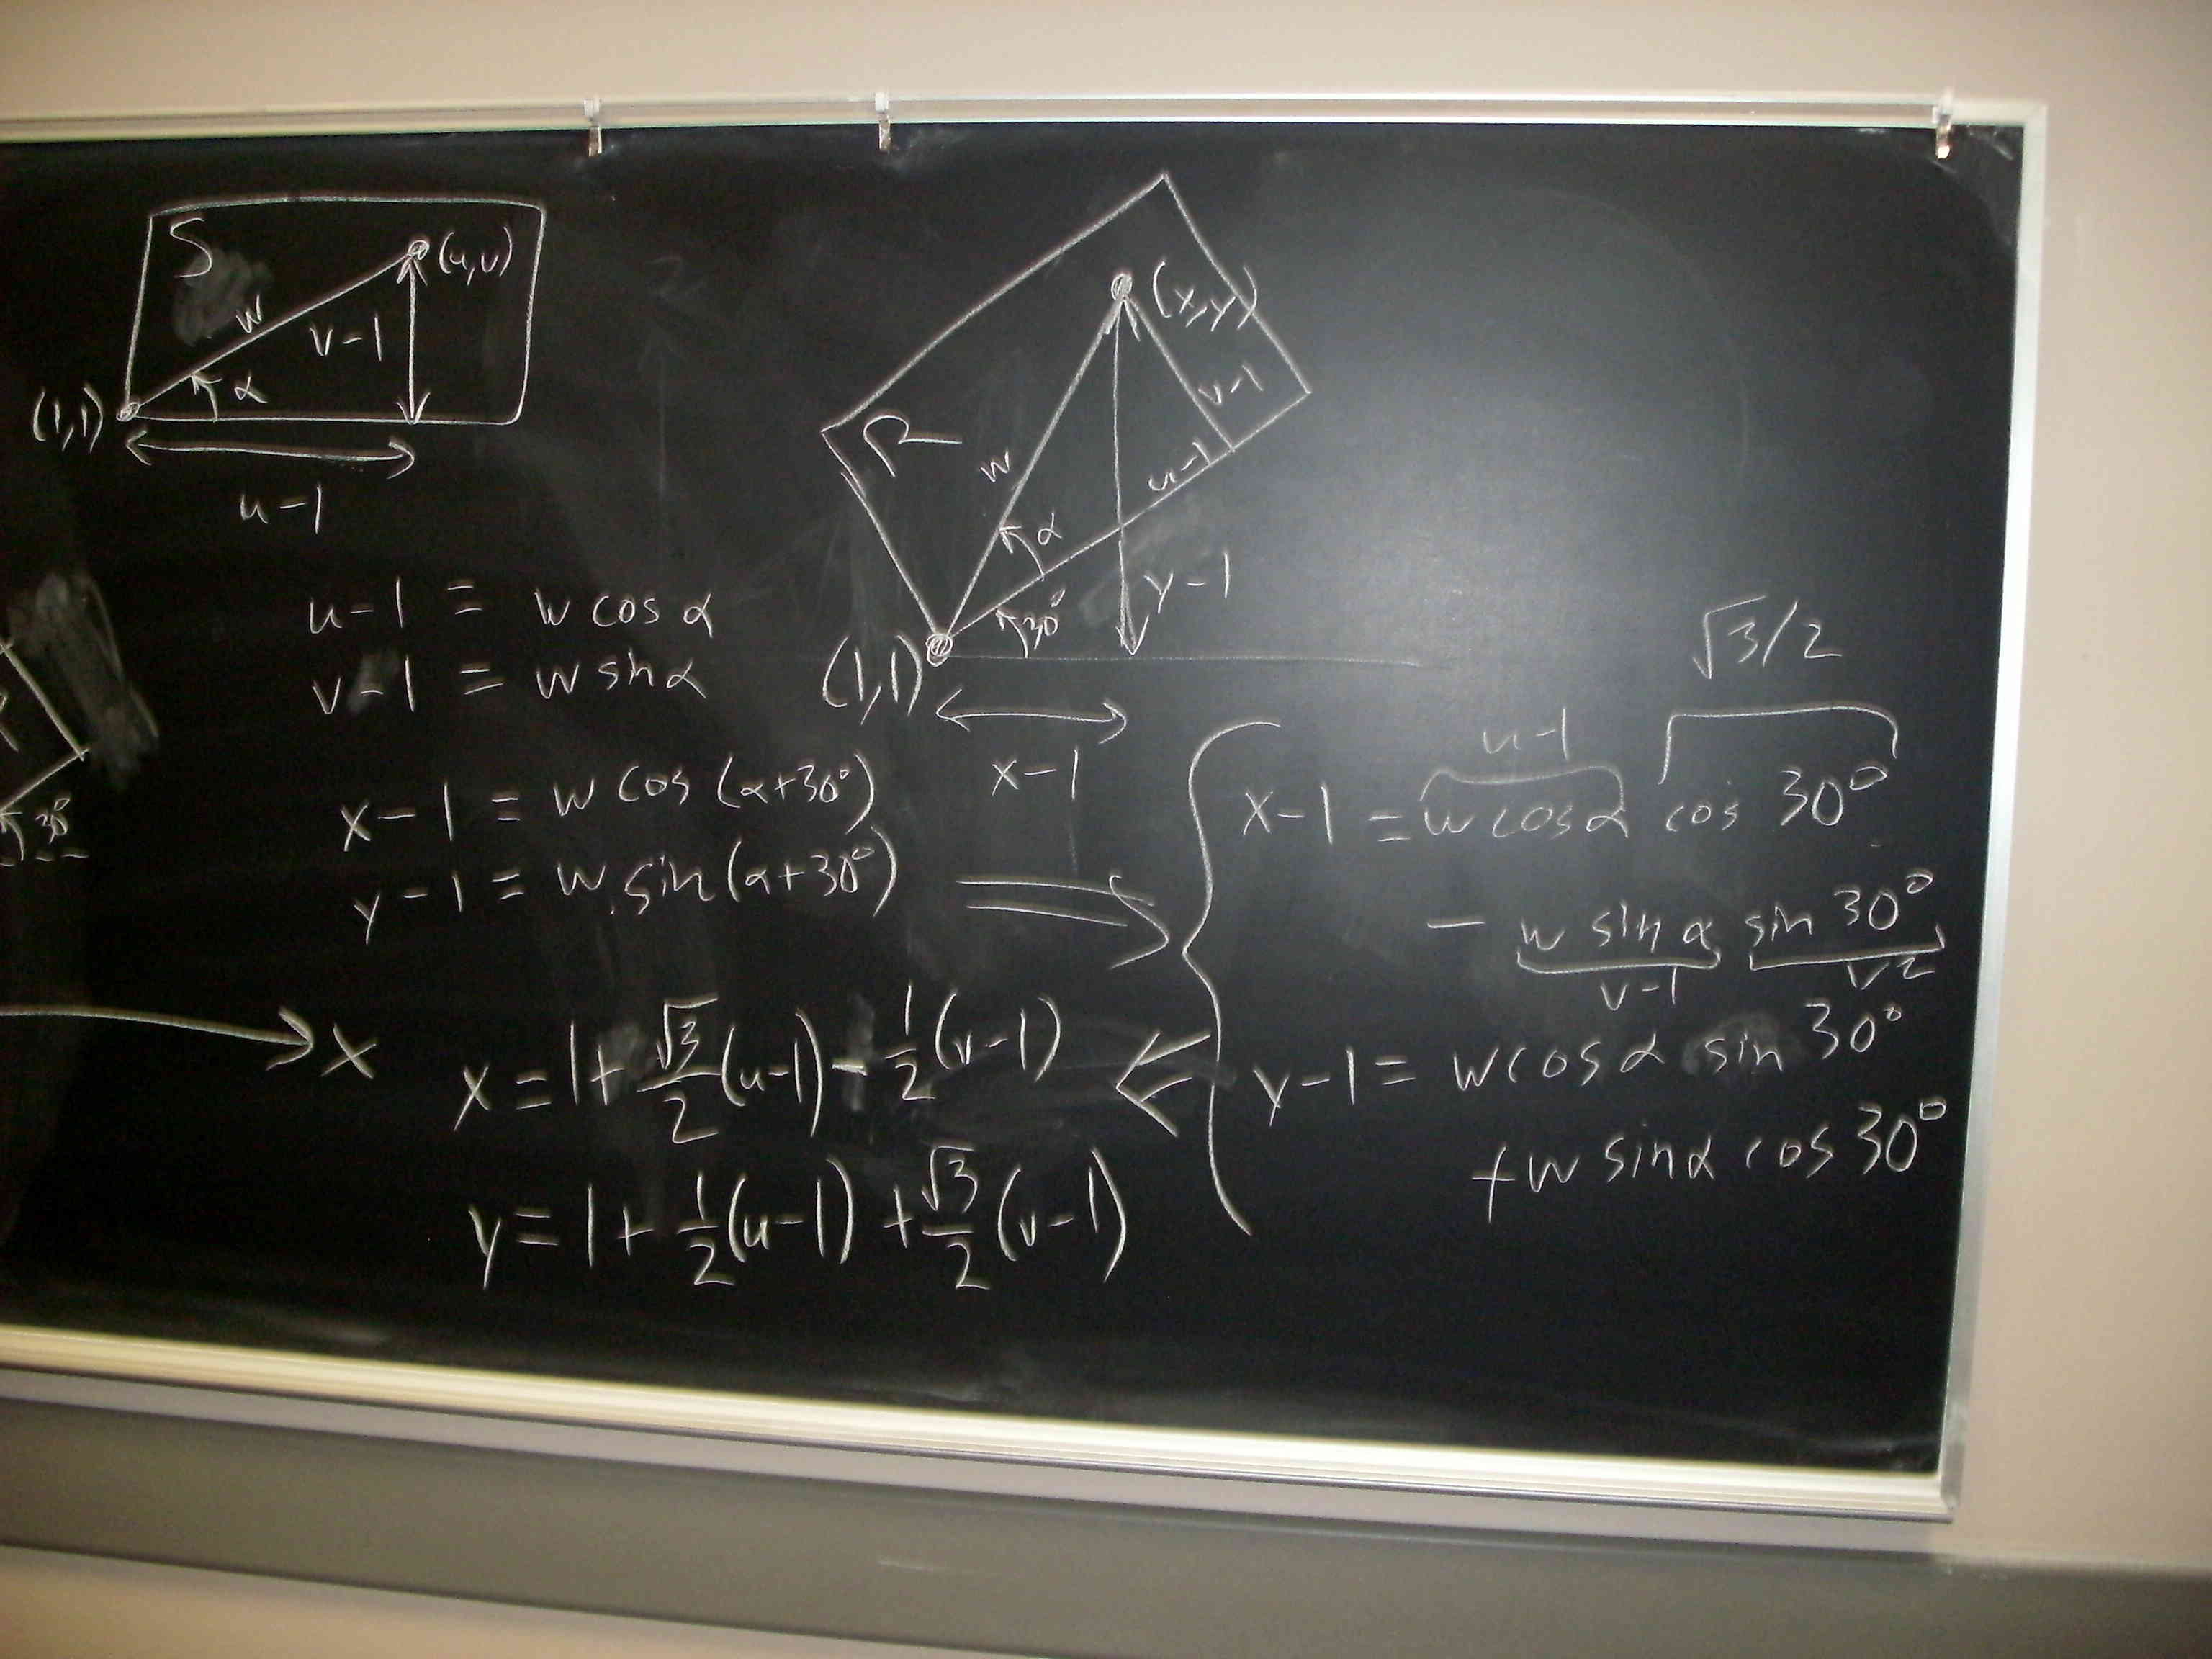 S
(u,v)
w
v-1
α
(1,1)
u-1
(x,y)
R
w
v-1
u-1
α
y-1
30°
(1,1)
x-1
u-1 = w cos α
v-1 = w sin α
x-1 = w cos (α+30°)
y-1 = w sin (α+30°)
⇒
√3/2
u-1
x-1 = w cos α cos 30°
- w sin α sin 30°
v-1 1/2
y-1 = w cos α sin 30°
+ w sin α cos 30°
⇐
30°
x
x = 1 + √3/2 (u-1) - 1/2 (v-1)
y = 1 + 1/2 (u-1) + √3/2 (v-1)